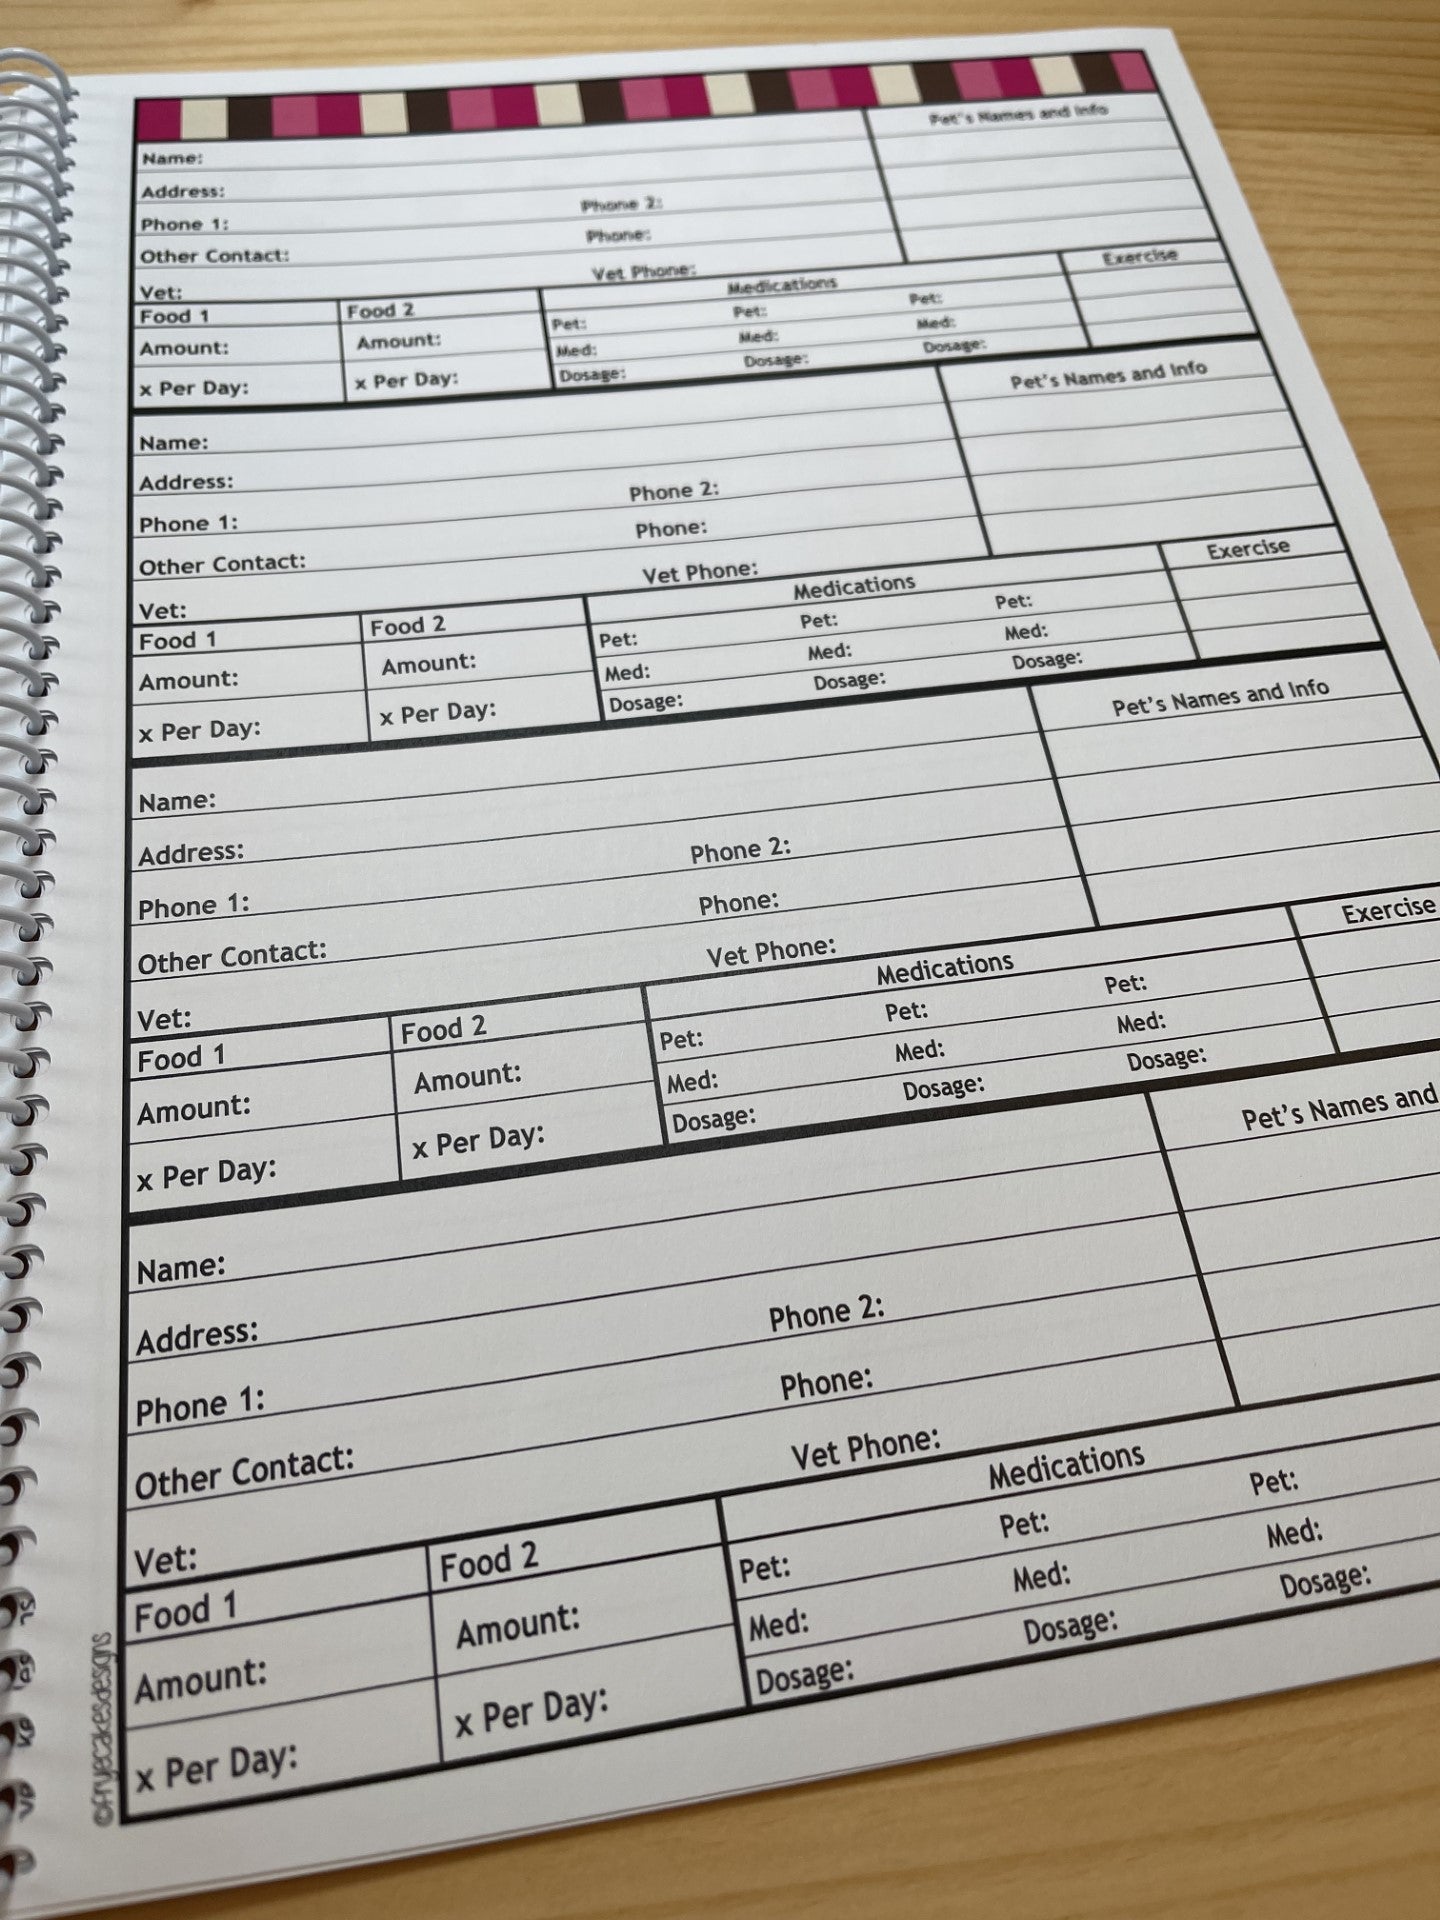 Pet's Names and Info
Name:
Address:
Phone 1: Phone 2:
Other Contact: Phone:
Vet: Vet Phone:
Food 1 Food 2 Medications Exercise
Amount: Amount: Pet: Pet: Pet:
Med: Med: Med:
x Per Day: x Per Day: Dosage: Dosage: Dosage:
Pet's Names and Info
Name:
Address:
Phone 1: Phone 2:
Other Contact: Phone:
Vet: Vet Phone:
Food 1 Food 2 Medications Exercise
Amount: Amount: Pet: Pet: Pet:
Med: Med: Med:
x Per Day: x Per Day: Dosage: Dosage: Dosage:
Pet's Names and Info
Name:
Address:
Phone 1: Phone 2:
Other Contact: Phone:
Vet: Vet Phone:
Food 1 Food 2 Medications Exercise
Amount: Amount: Pet: Pet: Pet:
Med: Med: Med:
x Per Day: x Per Day: Dosage: Dosage: Dosage:
Pet's Names and
Name:
Address:
Phone 1: Phone 2:
Other Contact: Phone:
Vet: Vet Phone:
Food 1 Food 2 Medications
Amount: Amount: Pet: Pet: Pet:
Med: Med: Med:
x Per Day: x Per Day: Dosage: Dosage: Dosage:
©fryecakesdesigns